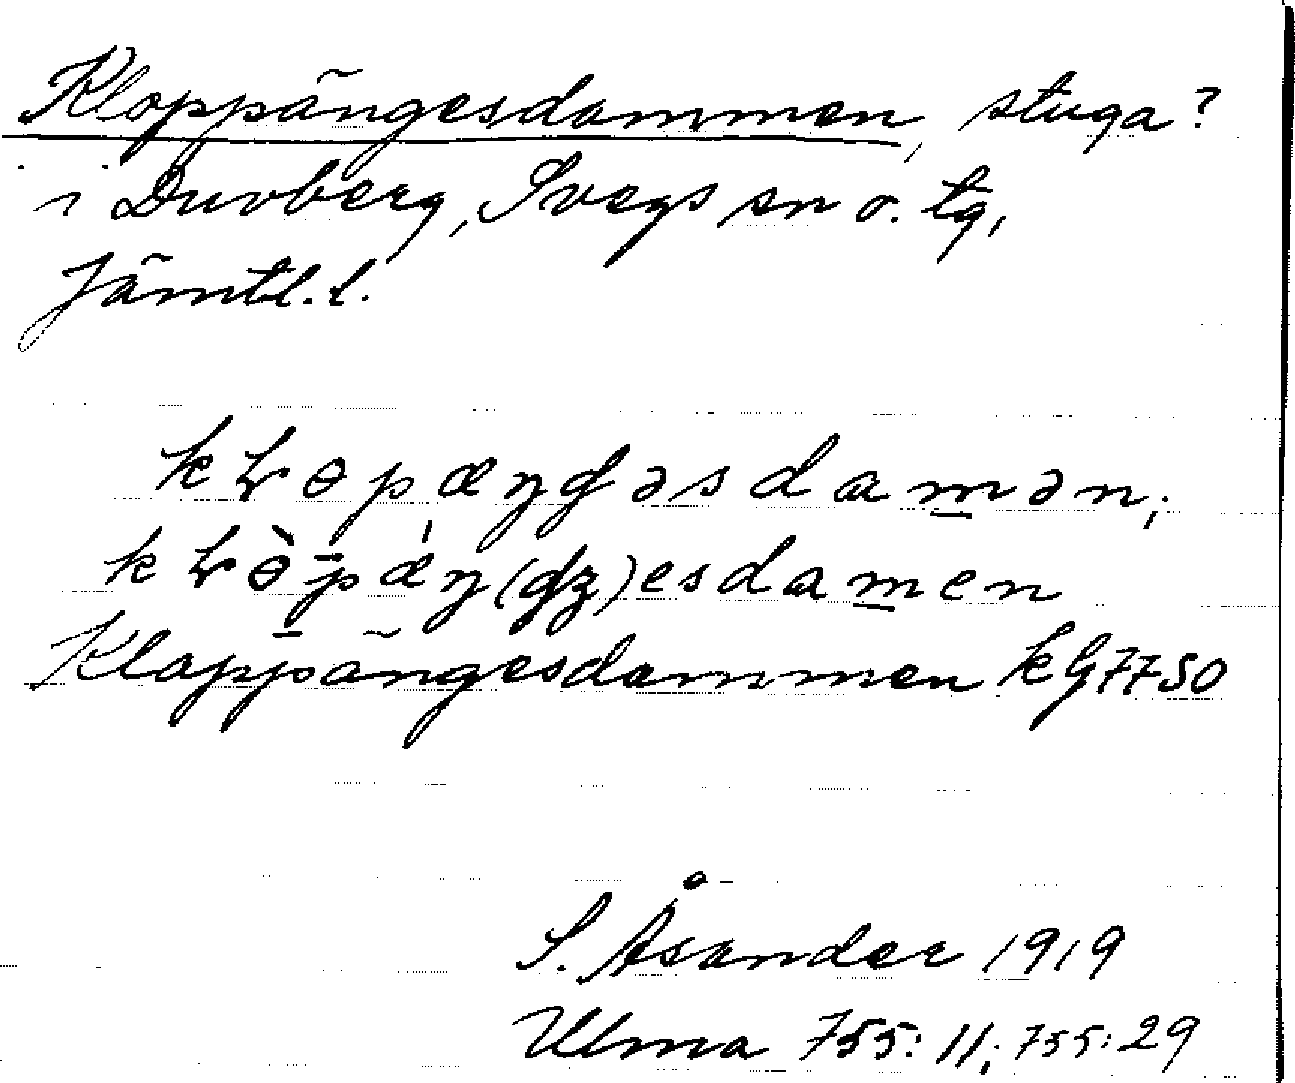 Kloppängesdammen, stuga?
i Duvberg, Svegs sn o. tg,
Jämtl. l.
kɫɵpæŋɠəsdam̲ən;
kɫɵ̀p̄æ̍ŋ(ɠʒ)esdam̲en
Kloppängesdammen kG7750
S. Åsander 1919
Ulma 755:11; 755:29